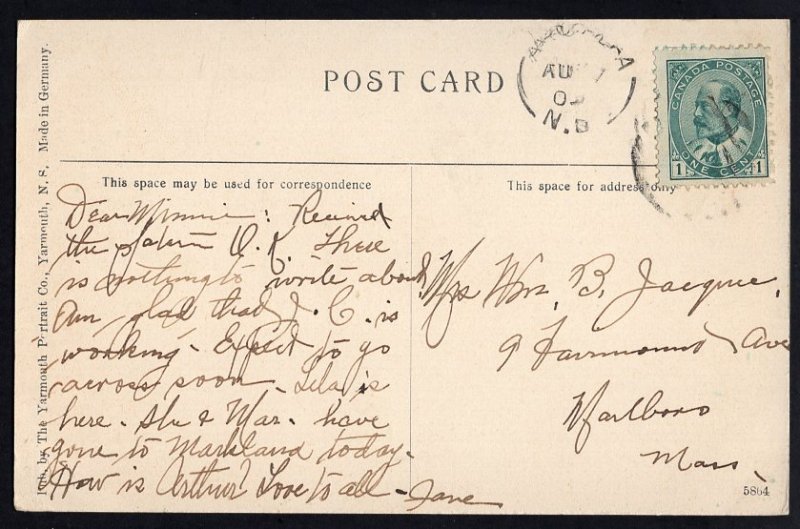 POST CARD
AU 1
0
N.B
CANADA POSTAGE
1 ONE CENT 1
This space may be used for correspondence
This space for address only
Dear Minnie: Received
the O.K. There
is nothing to write about.
Am glad that J. C. is
working. Expect to go
across soon. Lela is
here. She & Mar. have
gone to Markland today.
How is Arthur? Love to all - Jane
Mrs Wm. B. Jacque,
9 Fairmount Ave
Marlboro
Mass.
5864
Pub. by The Yarmouth Portrait Co., Yarmouth, N. S. Made in Germany.